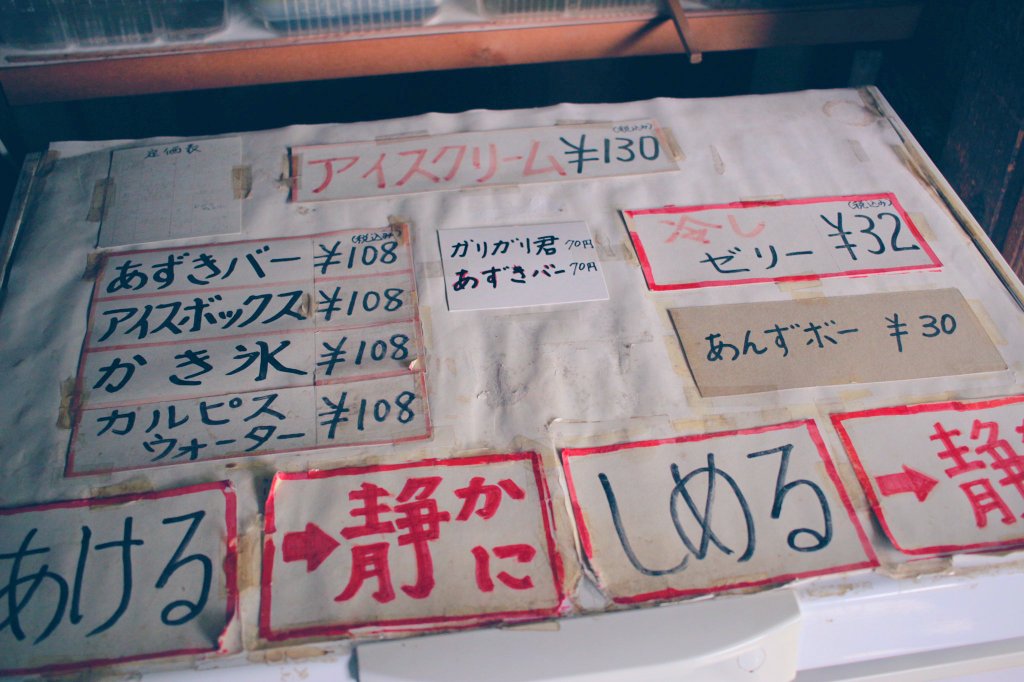 定価表
アイスクリーム ¥130
(税込み)
あずきバー ¥108
(税込み)
アイスボックス ¥108
かき氷 ¥108
カルピス
ウォーター ¥108
ガリガリ君 70円
あずきバー 70円
冷し
ゼリー ¥32
(税込み)
あんずボー ¥30
あける
→静かに
しめる
→静